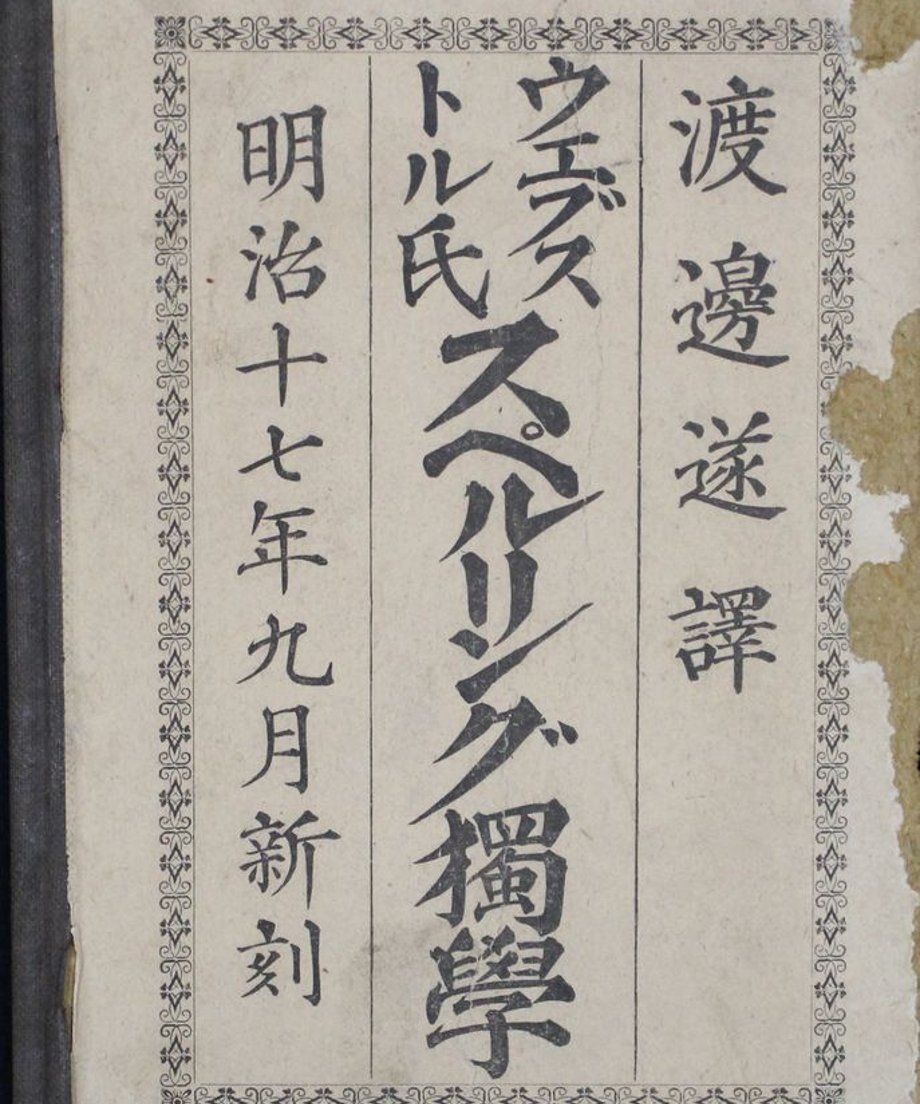 渡邊遂譯
ウエブス
トル氏
スペルリング獨學
明治十七年九月新刻